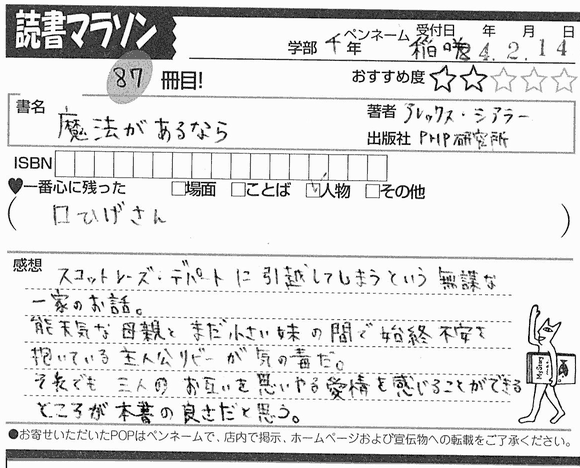 読書マラソン
学部 年 ペンネーム 受付日 年 月 日
24.2.14
87 冊目! おすすめ度 ★★☆☆☆
書名 魔法があるなら
著者 アレックス・シアラー
出版社 PHP研究所
ISBN
♥一番心に残った □場面 □ことば ☑人物 □その他
( 口ひげさん )
感想 スコットレーズ・デパートに引越してしまうという無謀な
一家のお話。
能天気な母親とまだ小さい妹の間で始終不安を
抱いている主人公リビーが気の毒だ。
それでも三人のお互いを思いやる愛情を感じることができる
ところが本書の良さだと思う。
●お寄せいただいたPOPはペンネームで、店内で掲示、ホームページおよび宣伝物への転載をご了承ください。